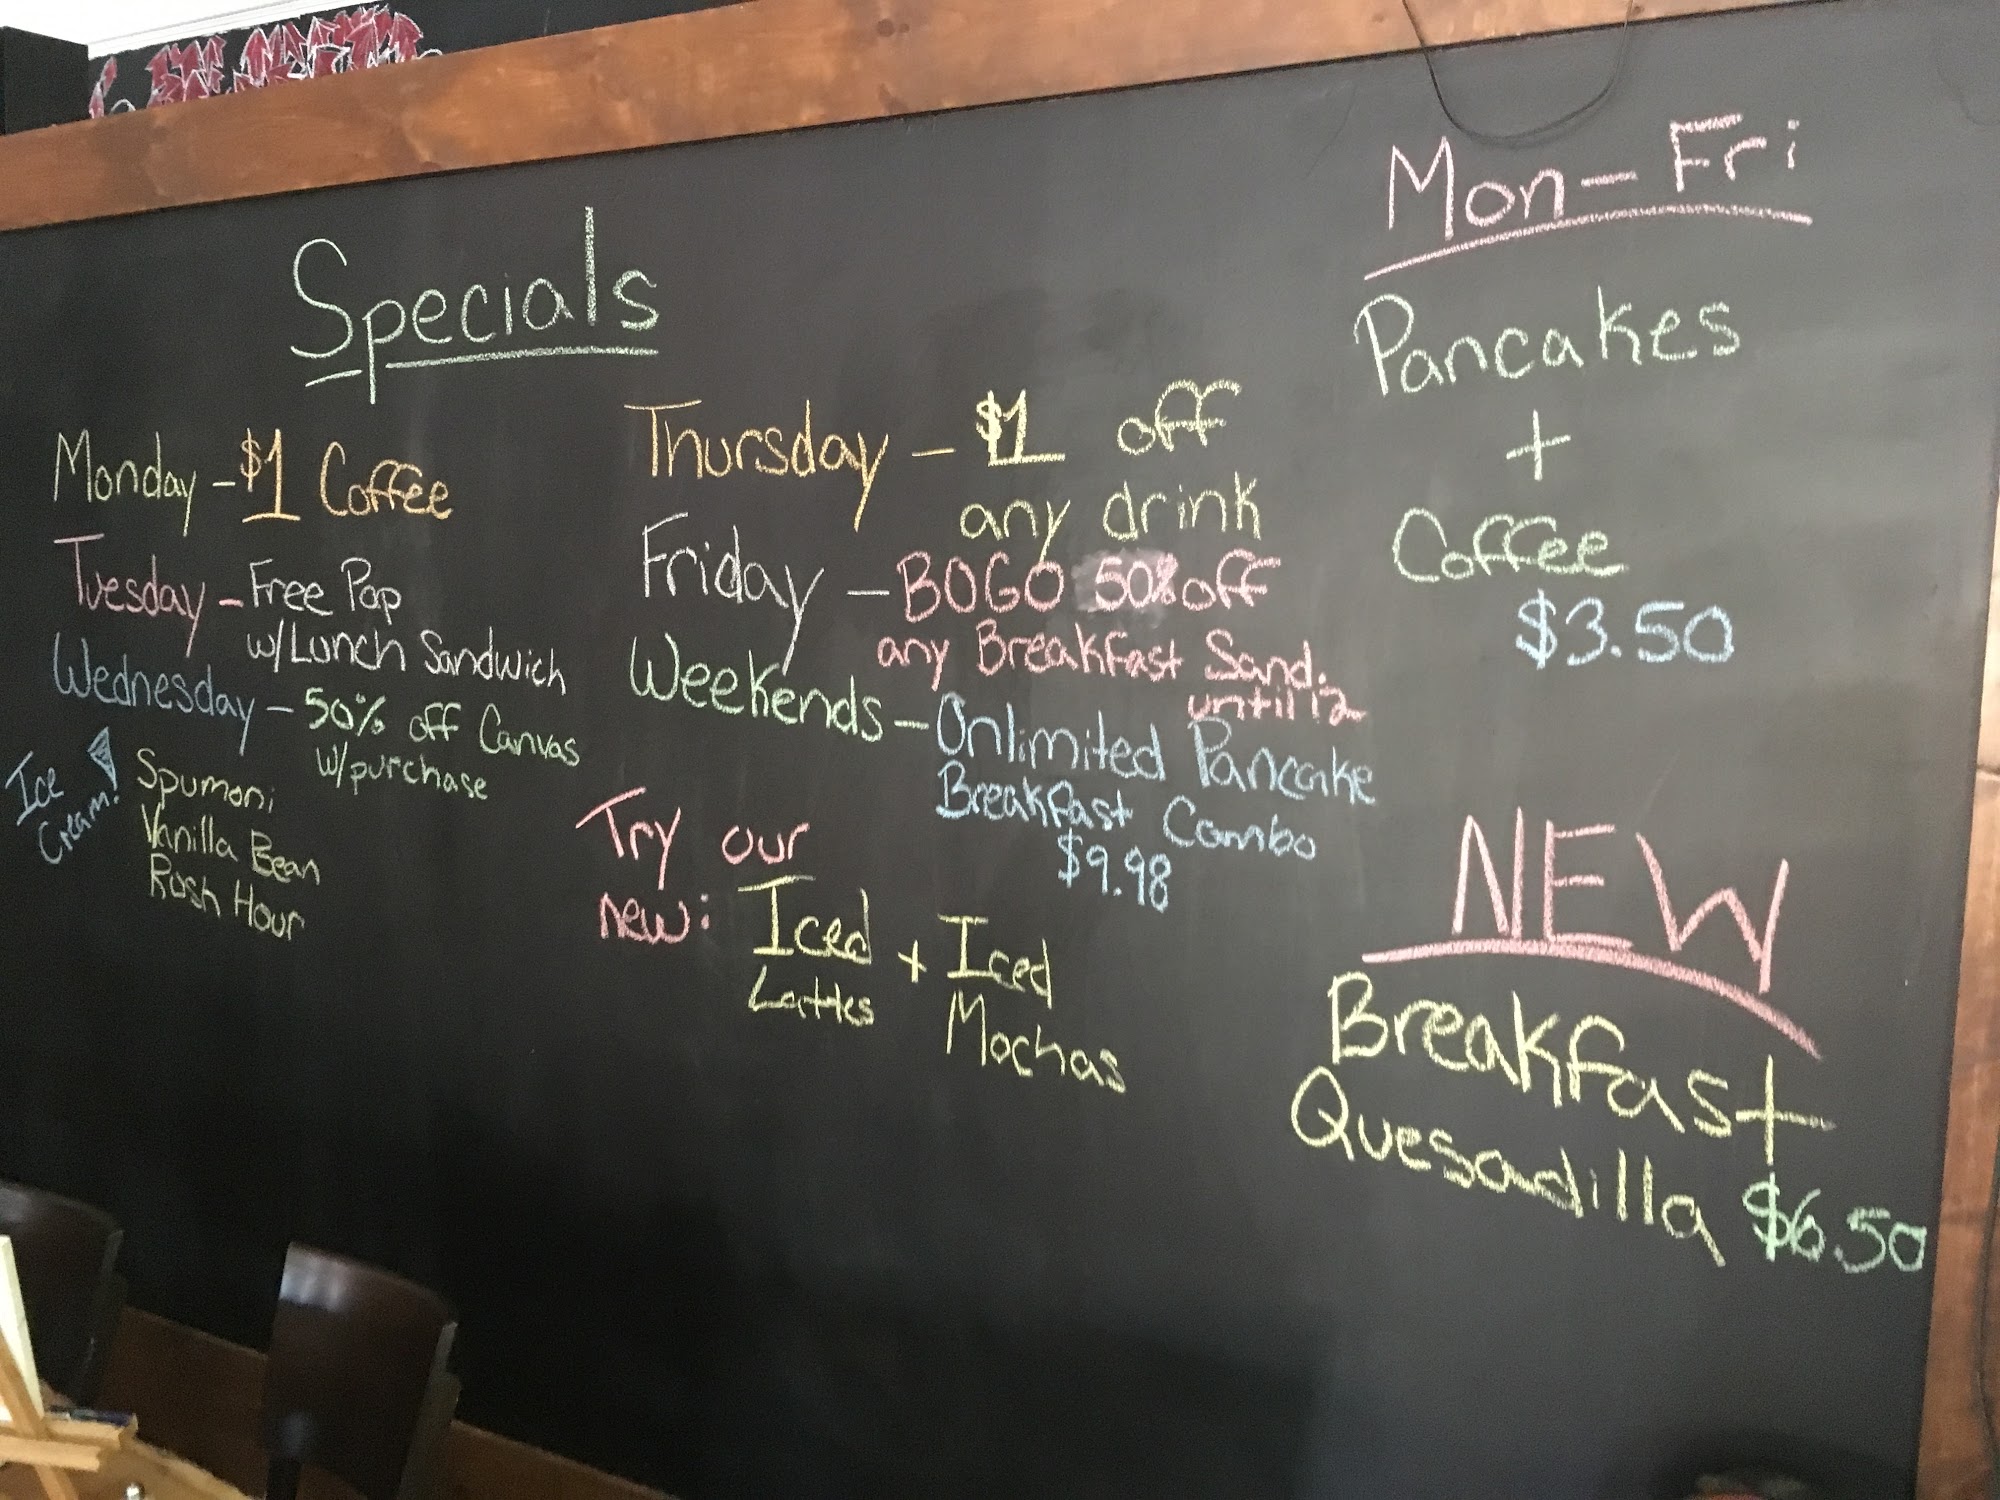 Specials
Monday - $1 Coffee
Tuesday - Free Pop
w/Lunch Sandwich
Wednesday - 50% off Canvas
w/purchase
Ice
Cream!
Spumoni
Vanilla Bean
Rush Hour
Thursday - $1 off
any drink
Friday - BOGO 50% off
any Breakfast Sand.
until 12
Weekends - Unlimited Pancake
Breakfast Combo
$9.98
Try our
new: Iced + Iced
Lattes Mochas
Mon - Fri
Pancakes
+
Coffee
$3.50
NEW
Breakfast
Quesadilla $6.50